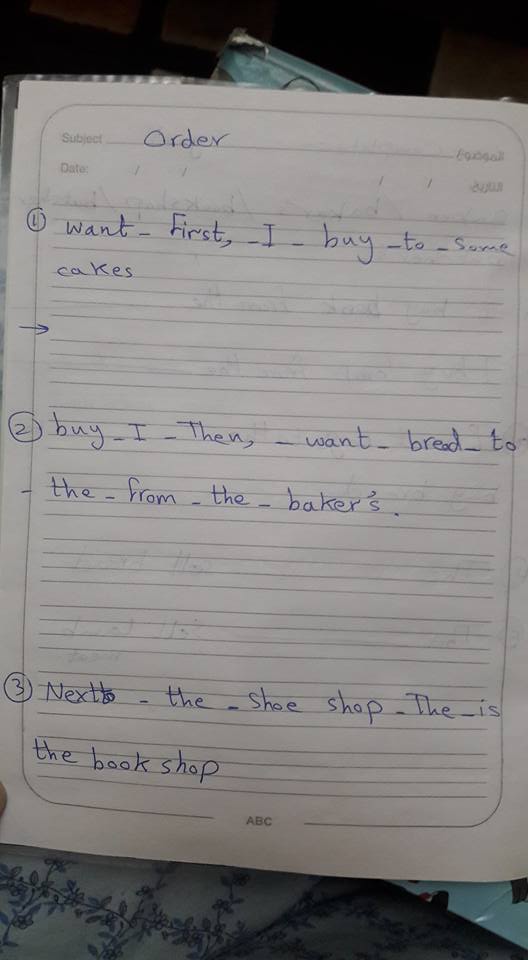 Subject Order الموضوع
Date: / / / / التاريخ
① want - First, - I - buy - to - some
cakes
→
② buy - I - Then, - want - bread - to
- the - from - the - baker's.
③ Next to - the - Shoe shop - The - is
the book shop
ABC